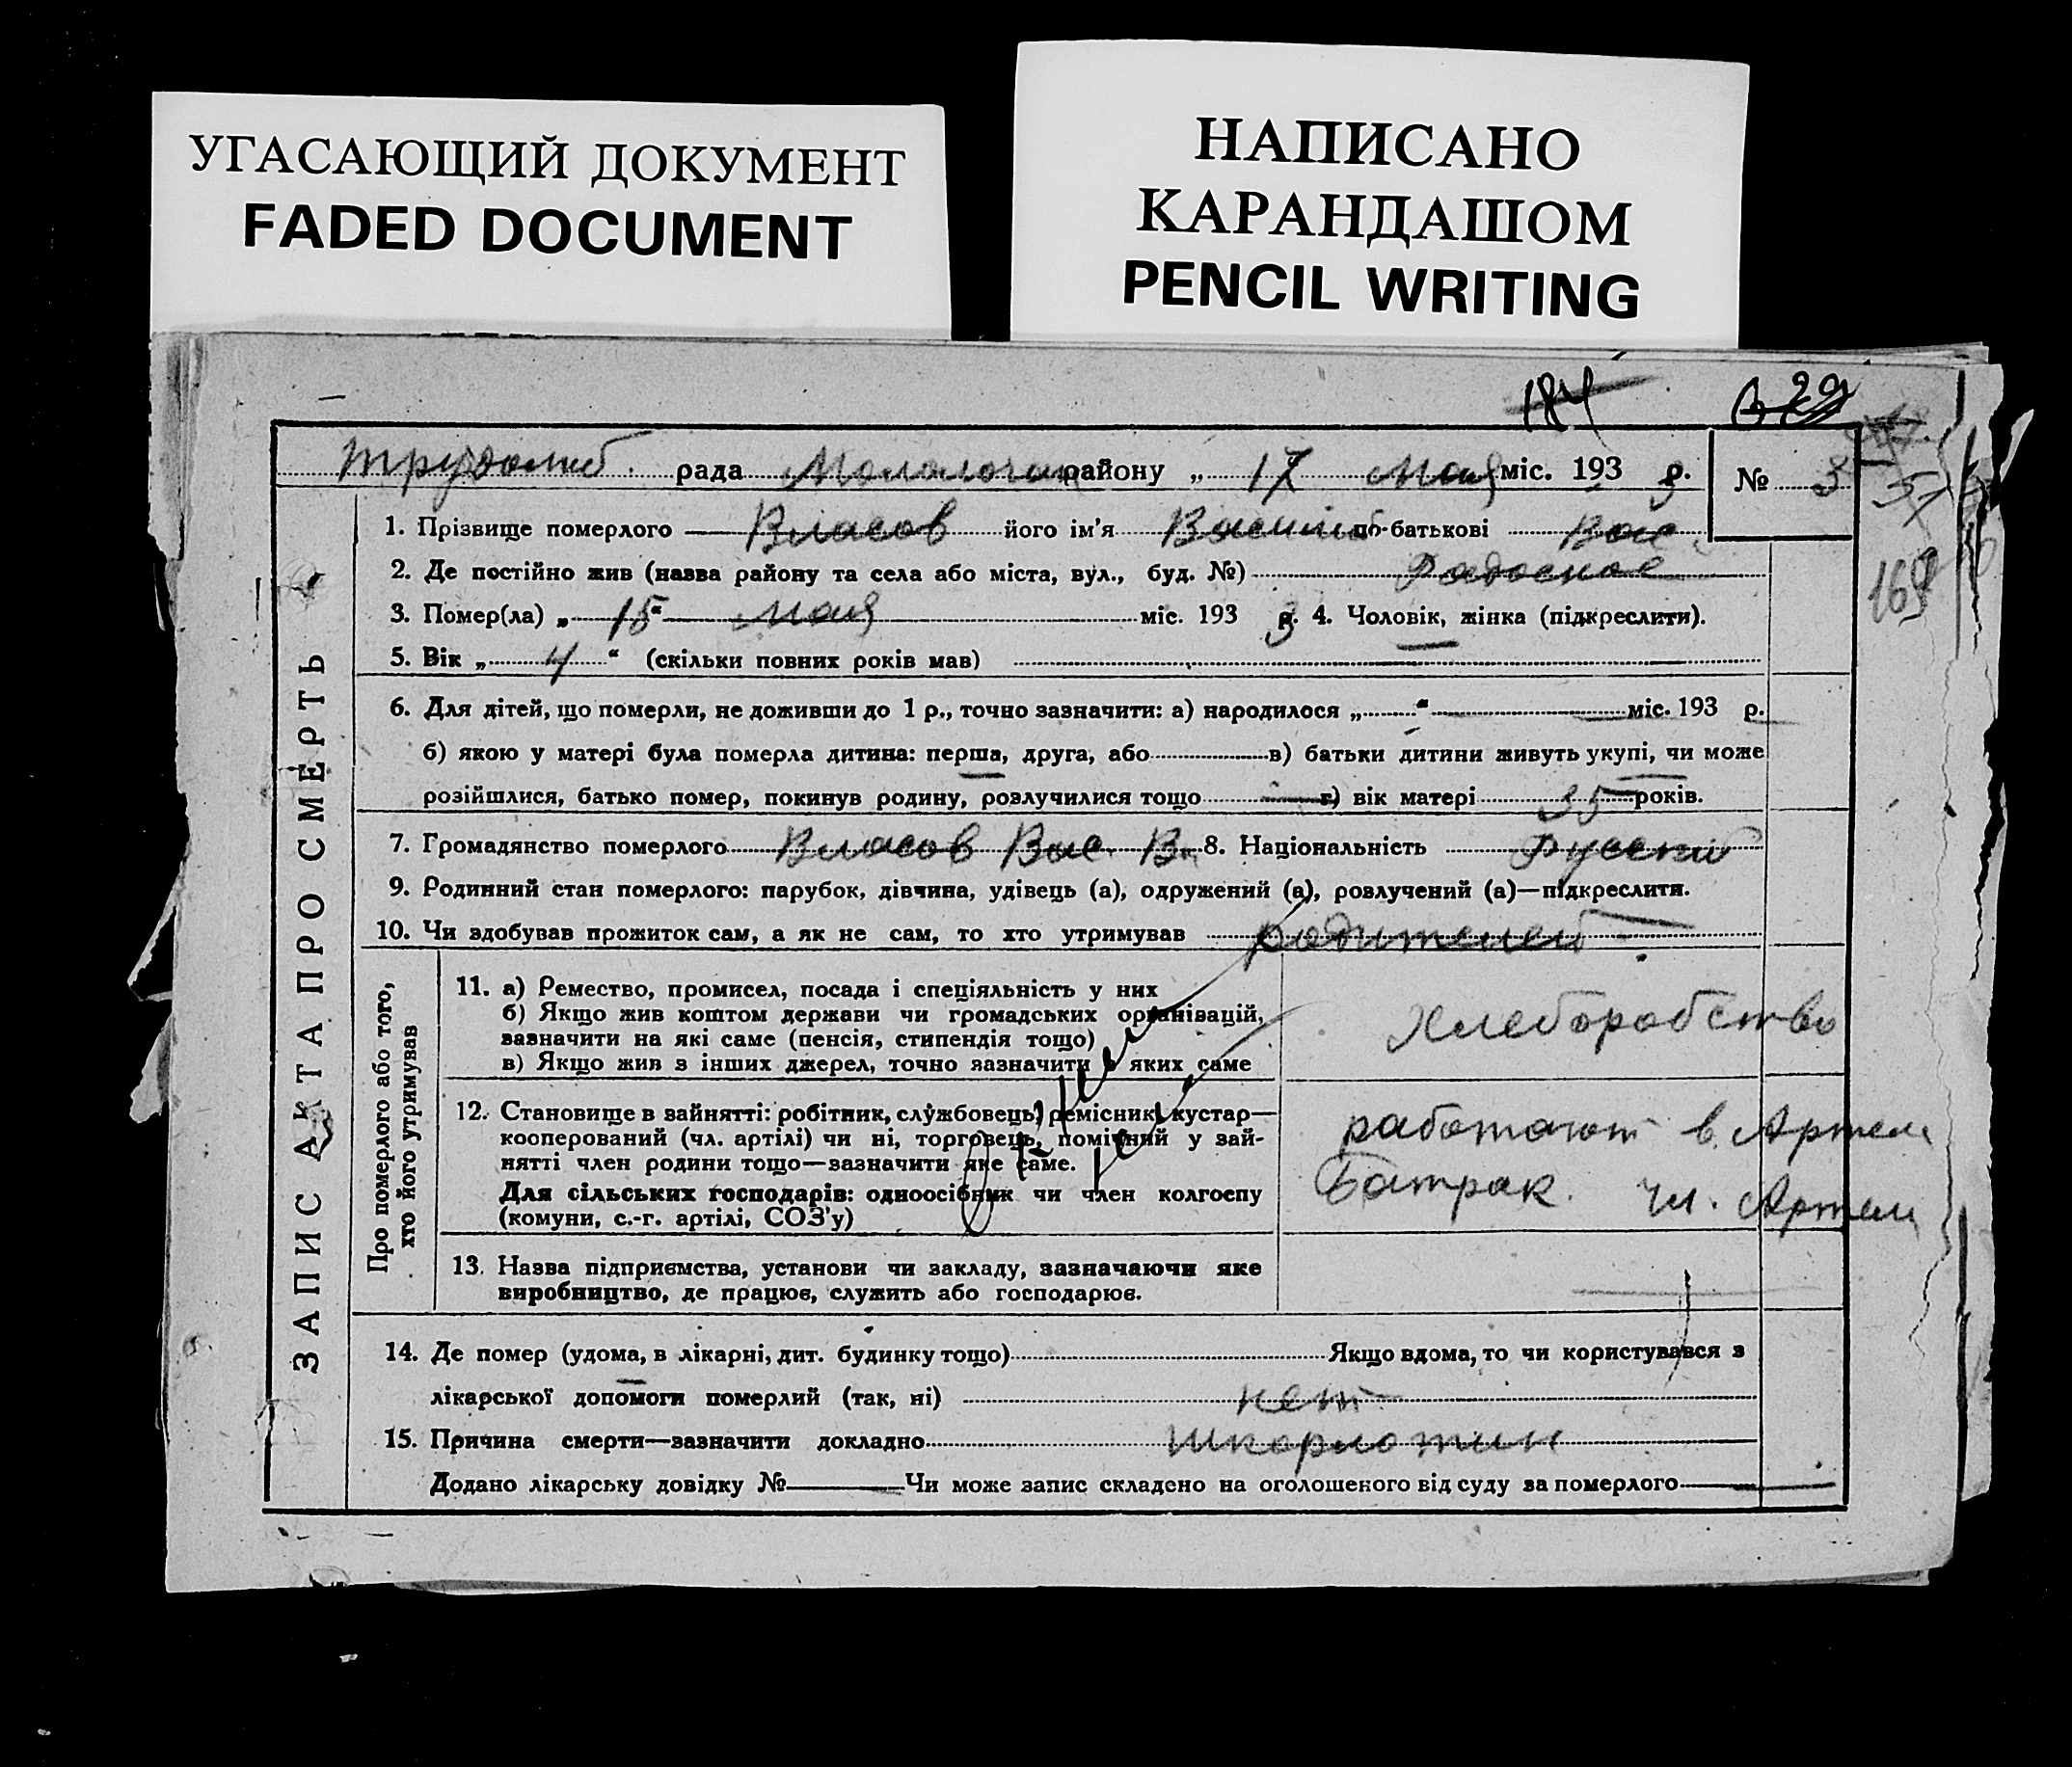 УГАСАЮЩИЙ ДОКУМЕНТ
FADED DOCUMENT
НАПИСАНО
КАРАНДАШОМ
PENCIL WRITING
184
29
трудолюб. рада района „ 17 Мая міс. 193 3 р. № 3
51
169
ЗАПИС АКТА ПРО СМЕРТЬ
1. Прізвище померлого Власов його ім'я Василий по-батькові Вас.
2. Де постійно жив (назва району та села або міста, вул., буд. №) Радосное
3. Помер(ла) „ 15 “ мая міс. 193 3 р. 4. Чоловік, жінка (підкреслити).
5. Вік „ 4 “ (скільки повних років мав)
6. Для дітей, що померли, не доживши до 1 р., точно зазначити: а) народилося „ “ міс. 193 р.
б) якою у матері була померла дитина: перша, друга, або в) батьки дитини живуть укупі, чи може
розійшлися, батько помер, покинув родину, розлучилися тощо г) вік матері 35 років.
7. Громадянство померлого Власов Вас. В. 8. Національність Русский
9. Родинний стан померлого: парубок, дівчина, удівець (а), одружений (а), розлучений (а)—підкреслити.
10. Чи здобував прожиток сам, а як не сам, то хто утримував родителей
Про померлого або того,
хто його утримував
11. а) Ремество, промисел, посада і спеціяльність у них
б) Якщо жив коштом держави чи громадських організацій,
зазначити на які саме (пенсія, стипендія тощо)
в) Якщо жив з інших джерел, точно зазначити з яких саме
хлеборобство
12. Становище в зайнятті: робітник, службовець, ремісник, кустар—
кооперований (чл. артілі) чи ні, торговець, помічний у зай-
нятті член родини тощо—зазначити яке саме.
Для сільських господарів: одноосібник чи член колгоспу
(комуни, с.-г. артілі, СОЗ'у)
работают в Артели
Батрак. чл. Артели
13. Назва підприємства, установи чи закладу, зазначаючи яке
виробництво, де працює, служить або господарює.
14. Де помер (удома, в лікарні, дит. будинку тощо) Якщо вдома, то чи користувався з
лікарської допомоги померлий (так, ні) нет
15. Причина смерти—зазначити докладно шкорлотин
Додано лікарську довідку № Чи може запис складено на оголошеного від суду за померлого